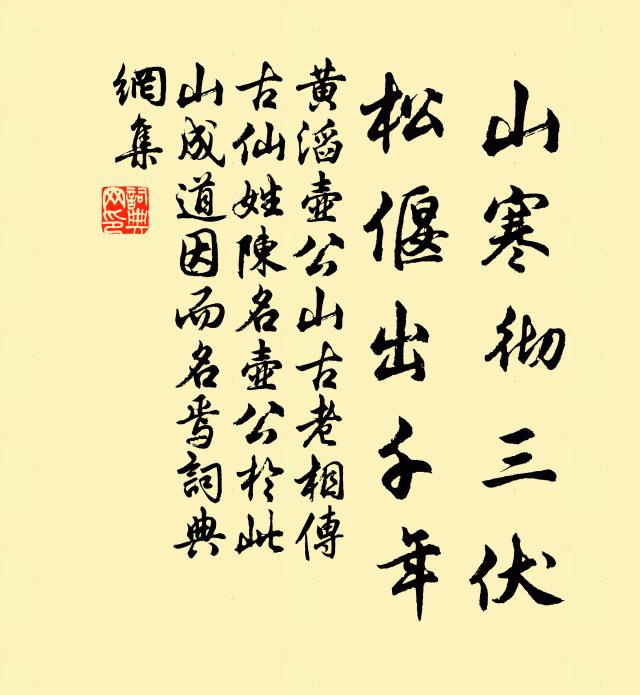 山寒彻三伏
松偃出千年
黄滔壶公山古老相傳
古仙姓陳名壶公於此
山成道因而名焉詞典
網集
詞典網印